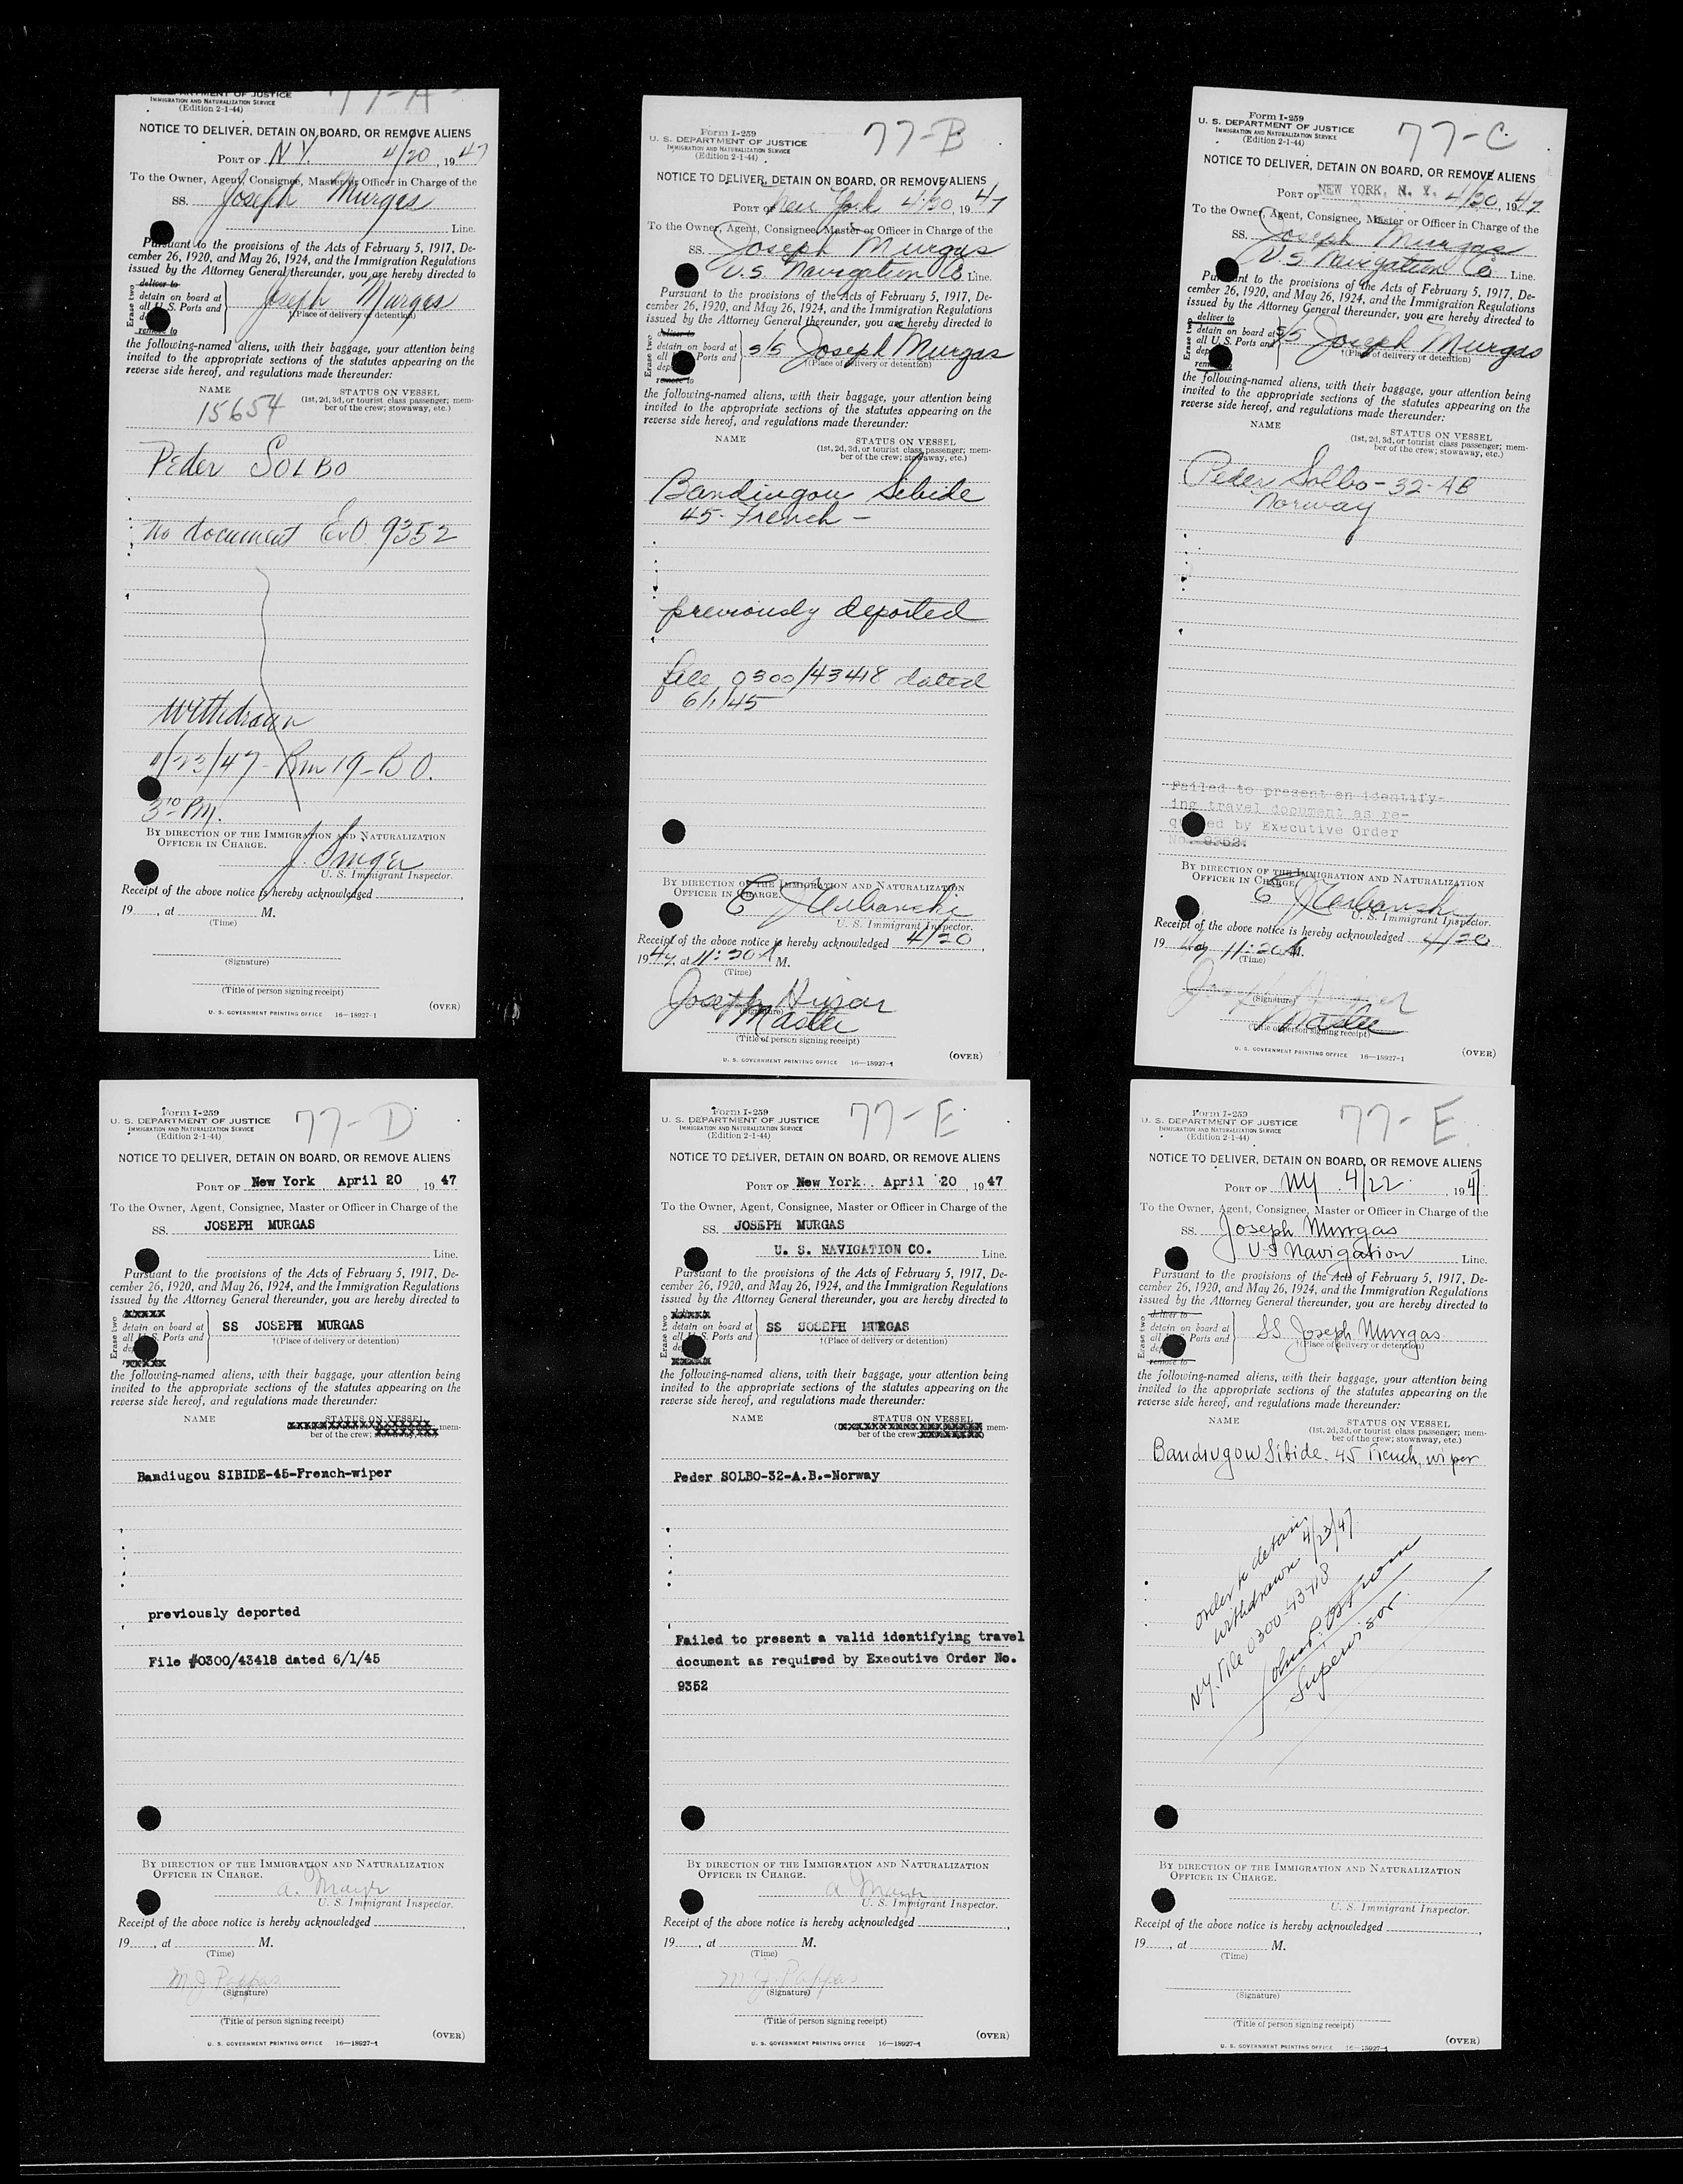 77-A
DEPARTMENT OF JUSTICE
IMMIGRATION AND NATURALIZATION SERVICE
(Edition 2-1-44)
NOTICE TO DELIVER, DETAIN ON BOARD, OR REMOVE ALIENS
PORT OF N.Y. 4/20, 1947
To the Owner, Agent, Consignee, Master or Officer in Charge of the
SS. Joseph Murgas
Line.
Pursuant to the provisions of the Acts of February 5, 1917, De-
cember 26, 1920, and May 26, 1924, and the Immigration Regulations
issued by the Attorney General thereunder, you are hereby directed to
Erase two
deliver to
detain on board at
all U.S. Ports and
remove to
Joseph Murgas
†(Place of delivery or detention)
the following-named aliens, with their baggage, your attention being
invited to the appropriate sections of the statutes appearing on the
reverse side hereof, and regulations made thereunder:
NAME STATUS ON VESSEL
(1st, 2d, 3d, or tourist class passenger; mem-
ber of the crew; stowaway, etc.)
15654
Peder SOLBO
No document E.O. 9352
Withdrawn
4/23/47 - Rm 19 - B O.
3:10 PM.
BY DIRECTION OF THE IMMIGRATION AND NATURALIZATION
OFFICER IN CHARGE.
J. Singer
U. S. Immigrant Inspector.
Receipt of the above notice is hereby acknowledged
19, at M.
(Time)
(Signature)
(Title of person signing receipt)
(OVER)
U. S. GOVERNMENT PRINTING OFFICE 16—18927-1
77-B
Form I-259
U. S. DEPARTMENT OF JUSTICE
IMMIGRATION AND NATURALIZATION SERVICE
(Edition 2-1-44)
NOTICE TO DELIVER, DETAIN ON BOARD, OR REMOVE ALIENS
PORT OF New York 4/20, 1947
To the Owner, Agent, Consignee, Master or Officer in Charge of the
SS. Joseph Murgas
U.S. Navigation Co Line.
Pursuant to the provisions of the Acts of February 5, 1917, De-
cember 26, 1920, and May 26, 1924, and the Immigration Regulations
issued by the Attorney General thereunder, you are hereby directed to
Erase two
deliver to
detain on board at
all Ports and
remove to
S/S Joseph Murgas
†(Place of delivery or detention)
the following-named aliens, with their baggage, your attention being
invited to the appropriate sections of the statutes appearing on the
reverse side hereof, and regulations made thereunder:
NAME STATUS ON VESSEL
(1st, 2d, 3d, or tourist class passenger; mem-
ber of the crew; stowaway, etc.)
Bandiugou Sibide
45 - French -
previously deported
file 0300/43418 dated
6/1/45
BY DIRECTION OF THE IMMIGRATION AND NATURALIZATION
OFFICER IN CHARGE.
E J Urbanski
U. S. Immigrant Inspector.
Receipt of the above notice is hereby acknowledged 4/20,
1947, at 11:20 A M.
(Time)
Joseph
(Signature)
Master
(Title of person signing receipt)
(OVER)
U. S. GOVERNMENT PRINTING OFFICE 16—18927-1
77-C
Form I-259
U. S. DEPARTMENT OF JUSTICE
IMMIGRATION AND NATURALIZATION SERVICE
(Edition 2-1-44)
NOTICE TO DELIVER, DETAIN ON BOARD, OR REMOVE ALIENS
PORT OF NEW YORK, N. Y. 4/20, 1947
To the Owner, Agent, Consignee, Master or Officer in Charge of the
SS. Joseph Murgas
U S Navigation Co Line.
Pursuant to the provisions of the Acts of February 5, 1917, De-
cember 26, 1920, and May 26, 1924, and the Immigration Regulations
issued by the Attorney General thereunder, you are hereby directed to
Erase two
deliver to
detain on board at
all U.S. Ports and
S/S Joseph Murgas
†(Place of delivery or detention)
the following-named aliens, with their baggage, your attention being
invited to the appropriate sections of the statutes appearing on the
reverse side hereof, and regulations made thereunder:
NAME STATUS ON VESSEL
(1st, 2d, 3d, or tourist class passenger; mem-
ber of the crew; stowaway, etc.)
Peder Solbo - 32 - AB
Norway
Failed to present an identify-
ing travel document as re-
quired by Executive Order
No. 9352.
BY DIRECTION OF THE IMMIGRATION AND NATURALIZATION
OFFICER IN CHARGE.
E J Urbanski
U. S. Immigrant Inspector.
Receipt of the above notice is hereby acknowledged 4/20
1947 11:20 A M.
(Time)
Joseph
(Signature)
Master
(Title of person signing receipt)
(OVER)
U. S. GOVERNMENT PRINTING OFFICE 16—18927-1
77-D
Form I-259
U. S. DEPARTMENT OF JUSTICE
IMMIGRATION AND NATURALIZATION SERVICE
(Edition 2-1-44)
NOTICE TO DELIVER, DETAIN ON BOARD, OR REMOVE ALIENS
PORT OF New York, April 20, 1947
To the Owner, Agent, Consignee, Master or Officer in Charge of the
SS. JOSEPH MURGAS
Line.
Pursuant to the provisions of the Acts of February 5, 1917, De-
cember 26, 1920, and May 26, 1924, and the Immigration Regulations
issued by the Attorney General thereunder, you are hereby directed to
Erase two
xxxxx
detain on board at
all U.S. Ports and
xxxxx
SS JOSEPH MURGAS
†(Place of delivery or detention)
the following-named aliens, with their baggage, your attention being
invited to the appropriate sections of the statutes appearing on the
reverse side hereof, and regulations made thereunder:
NAME STATUS ON VESSEL
mem-
ber of the crew;
Bandiugou SIBIDE-45-French-wiper
previously deported
File #0300/43418 dated 6/1/45
BY DIRECTION OF THE IMMIGRATION AND NATURALIZATION
OFFICER IN CHARGE.
a. Mayer
U. S. Immigrant Inspector.
Receipt of the above notice is hereby acknowledged
19, at M.
(Time)
M J Pappas
(Signature)
(Title of person signing receipt)
(OVER)
U. S. GOVERNMENT PRINTING OFFICE 16—18927-1
77-E
Form I-259
U. S. DEPARTMENT OF JUSTICE
IMMIGRATION AND NATURALIZATION SERVICE
(Edition 2-1-44)
NOTICE TO DELIVER, DETAIN ON BOARD, OR REMOVE ALIENS
PORT OF New York, April 20, 1947
To the Owner, Agent, Consignee, Master or Officer in Charge of the
SS. JOSEPH MURGAS
U. S. NAVIGATION CO. Line.
Pursuant to the provisions of the Acts of February 5, 1917, De-
cember 26, 1920, and May 26, 1924, and the Immigration Regulations
issued by the Attorney General thereunder, you are hereby directed to
Erase two
xxxxx
detain on board at
all U.S. Ports and
xxxxx
SS JOSEPH MURGAS
†(Place of delivery or detention)
the following-named aliens, with their baggage, your attention being
invited to the appropriate sections of the statutes appearing on the
reverse side hereof, and regulations made thereunder:
NAME STATUS ON VESSEL
mem-
ber of the crew;
Peder SOLBO-32-A.B.-Norway
Failed to present a valid identifying travel
document as required by Executive Order No.
9352
BY DIRECTION OF THE IMMIGRATION AND NATURALIZATION
OFFICER IN CHARGE.
a Mayer
U. S. Immigrant Inspector.
Receipt of the above notice is hereby acknowledged
19, at M.
(Time)
M J Pappas
(Signature)
(Title of person signing receipt)
(OVER)
U. S. GOVERNMENT PRINTING OFFICE 16—18927-1
77-E
Form I-259
U. S. DEPARTMENT OF JUSTICE
IMMIGRATION AND NATURALIZATION SERVICE
(Edition 2-1-44)
NOTICE TO DELIVER, DETAIN ON BOARD, OR REMOVE ALIENS
PORT OF NY 4/22, 1947
To the Owner, Agent, Consignee, Master or Officer in Charge of the
SS. Joseph Murgas
US Navigation Line.
Pursuant to the provisions of the Acts of February 5, 1917, De-
cember 26, 1920, and May 26, 1924, and the Immigration Regulations
issued by the Attorney General thereunder, you are hereby directed to
Erase two
deliver to
detain on board at
all Ports and
remove to
SS Joseph Murgas
†(Place of delivery or detention)
the following-named aliens, with their baggage, your attention being
invited to the appropriate sections of the statutes appearing on the
reverse side hereof, and regulations made thereunder:
NAME STATUS ON VESSEL
(1st, 2d, 3d, or tourist class passenger; mem-
ber of the crew; stowaway, etc.)
Bandiugou Sibide. 45 French, wiper
order to detain
withdrawn 4/23/47
NY. File 0300-43418
John P.
Supervisor.
BY DIRECTION OF THE IMMIGRATION AND NATURALIZATION
OFFICER IN CHARGE.
U. S. Immigrant Inspector.
Receipt of the above notice is hereby acknowledged
19, at M.
(Time)
(Signature)
(Title of person signing receipt)
(OVER)
U. S. GOVERNMENT PRINTING OFFICE 16—18927-1